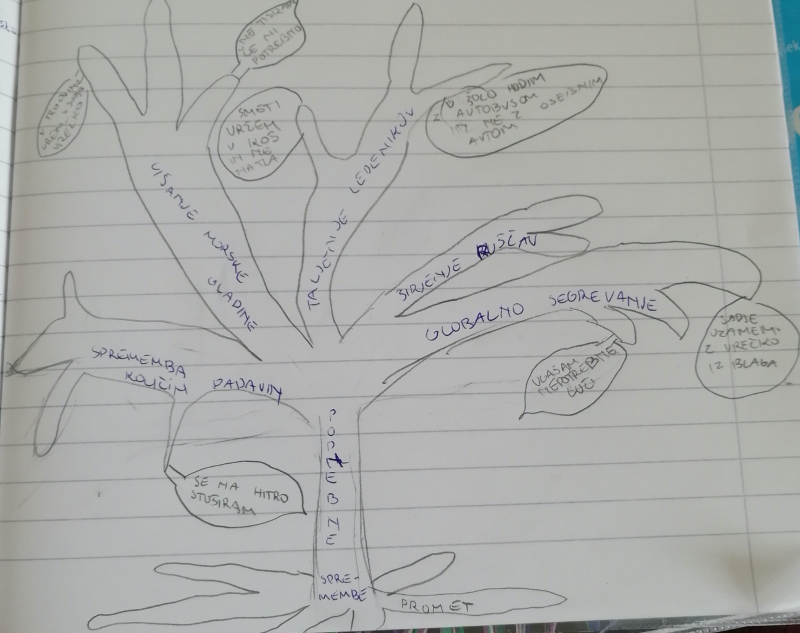 NE TISKAM
ČE NI
POTREBNO
SMETI
VRŽEM
V KOŠ
IN NE
NA TLA
V ŠOLO HODIM
Z AVTOBUSOM
IN NE Z OSEBNIM
AVTOM
VIŠANJE
MORSKE
GLADINE
TALJENJE LEDENIKOV
ŠIRJENJE PUŠČAV
GLOBALNO SEGREVANJE
SADJE
VZAMEM
Z VREČKO
IZ BLAGA
UGAŠAM
NEPOTREBNE
LUČI
SPREMEMBA
KOLIČIN PADAVIN
SE NA HITRO
STUŠIRAM
PODNEBNE
SPRE-
MEMBE
PROMET